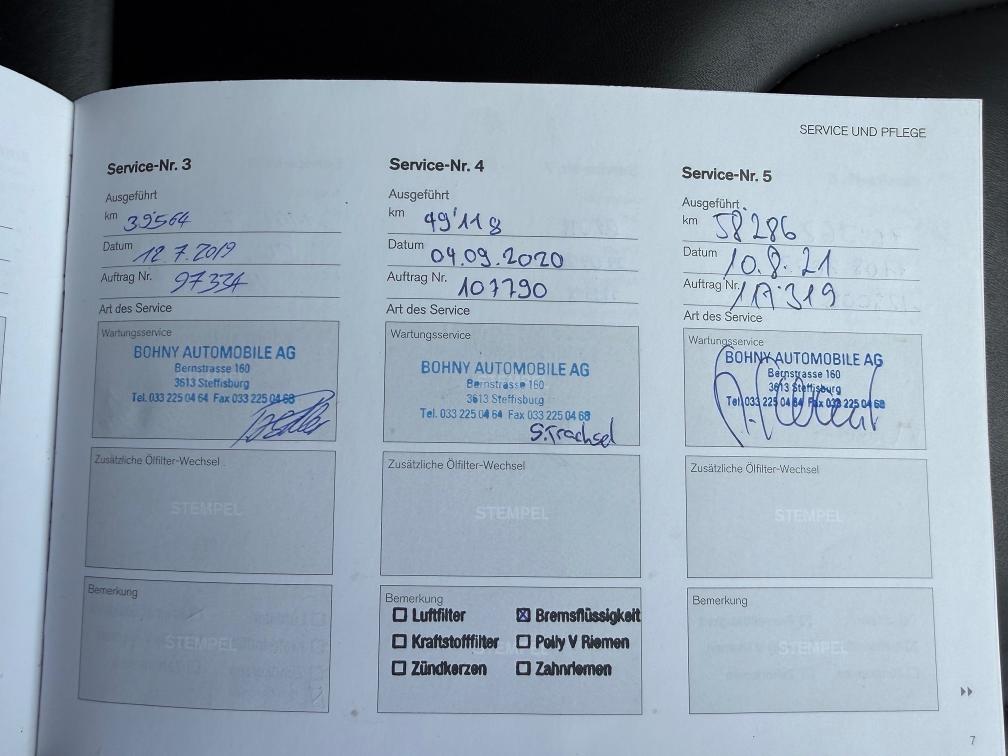 SERVICE UND PFLEGE
Service-Nr. 3
Ausgeführt
km 39564
Datum 12.7.2019
Auftrag Nr. 97334
Art des Service
Wartungsservice
BOHNY AUTOMOBILE AG
Bernstrasse 160
3613 Steffisburg
Tel. 033 225 04 64 Fax 033 225 04 68
Zusätzliche Ölfilter-Wechsel
STEMPEL
Bemerkung
STEMPEL
Service-Nr. 4
Ausgeführt
km 49'118
Datum 04.09.2020
Auftrag Nr. 107790
Art des Service
Wartungsservice
BOHNY AUTOMOBILE AG
Bernstrasse 160
3613 Steffisburg
Tel. 033 225 04 64 Fax 033 225 04 68
S.Trachsel
Zusätzliche Ölfilter-Wechsel
STEMPEL
Bemerkung
☐ Luftfilter ☒ Bremsflüssigkeit
☐ Kraftstofffilter ☐ Polly V Riemen
STEMPEL
☐ Zündkerzen ☐ Zahnriemen
Service-Nr. 5
Ausgeführt
km 58286
Datum 10.8.21
Auftrag Nr. 117319
Art des Service
Wartungsservice
BOHNY AUTOMOBILE AG
Bernstrasse 160
3613 Steffisburg
Tel. 033 225 04 64 Fax 033 225 04 68
Zusätzliche Ölfilter-Wechsel
STEMPEL
Bemerkung
STEMPEL
7